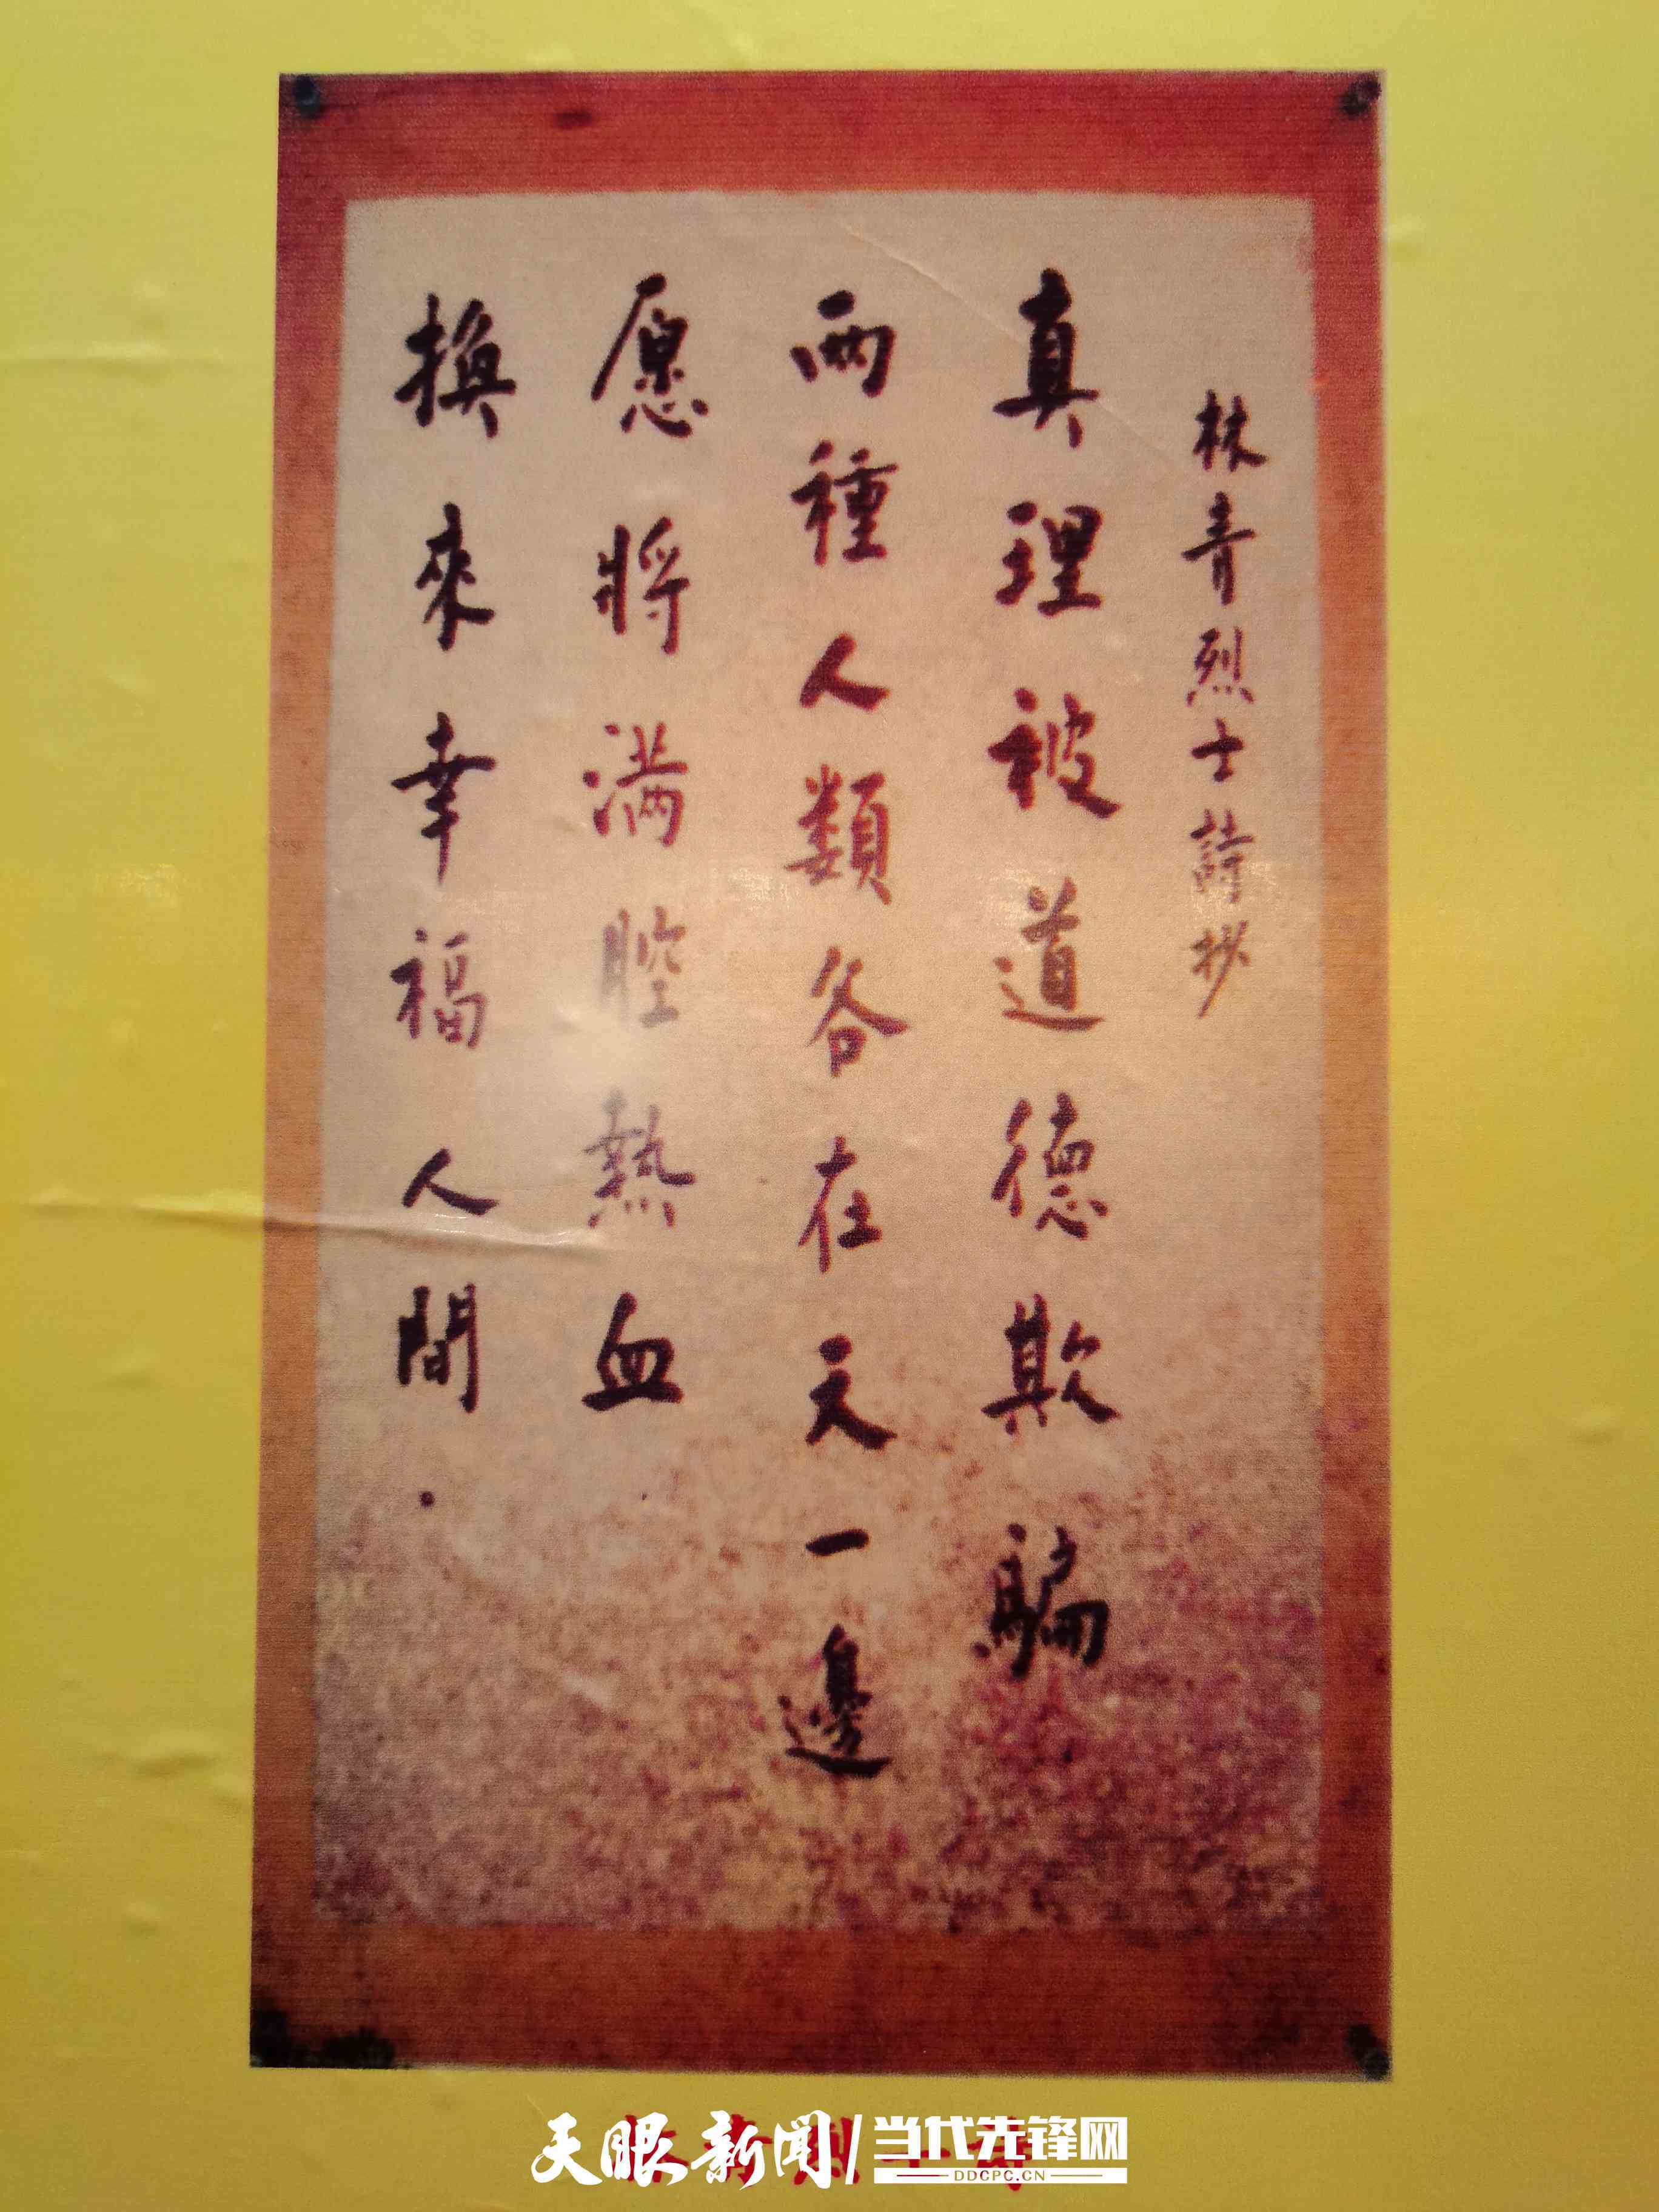 林青烈士詩抄
真理被道德欺騙
兩種人類各在天一邊
愿將满腔熱血
換來幸福人間.
天眼新闻/当代先锋网
DDCPC.CN